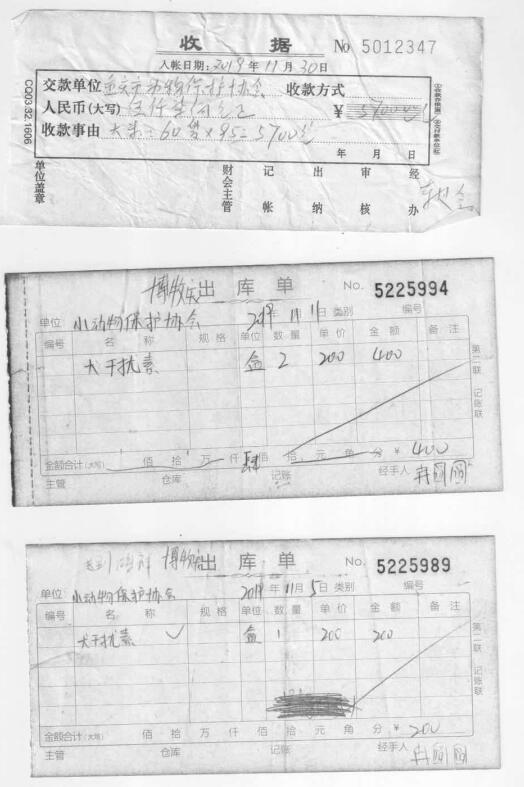 收 据 No 5012347
入帐日期：2019 年 11 月 30 日
交款单位 重庆市小动物保护协会 收款方式
人民币(大写) 伍仟柒佰元正 ¥ 5700元
收款事由 大米：60袋×95=5700元
年 月 日
单位盖章 财会主管 记帐 出纳 审核 经办
CQ03.32.1606
博牧安 出 库 单 No. 5225994
单位 小动物保护协会 2019 年 11 月 11 日 类别 编号
编号 名 称 规 格 单位 数 量 单 价 金 额 备 注
犬干扰素 盒 2 200 400
第二联 记账联
金额合计(大写) 佰 拾 万 仟 肆 佰 拾 元 角 分 ¥ 400
主管 仓库 记账 经手人
博牧安 出 库 单 No. 5225989
单位 小动物保护协会 2019 年 11 月 5 日 类别 编号
编号 名 称 规 格 单位 数 量 单 价 金 额 备 注
犬干扰素 ✓ 盒 1 200 200
第二联 记账联
金额合计(大写) 佰 拾 万 仟 佰 拾 元 角 分 ¥ 200
主管 仓库 记账 经手人